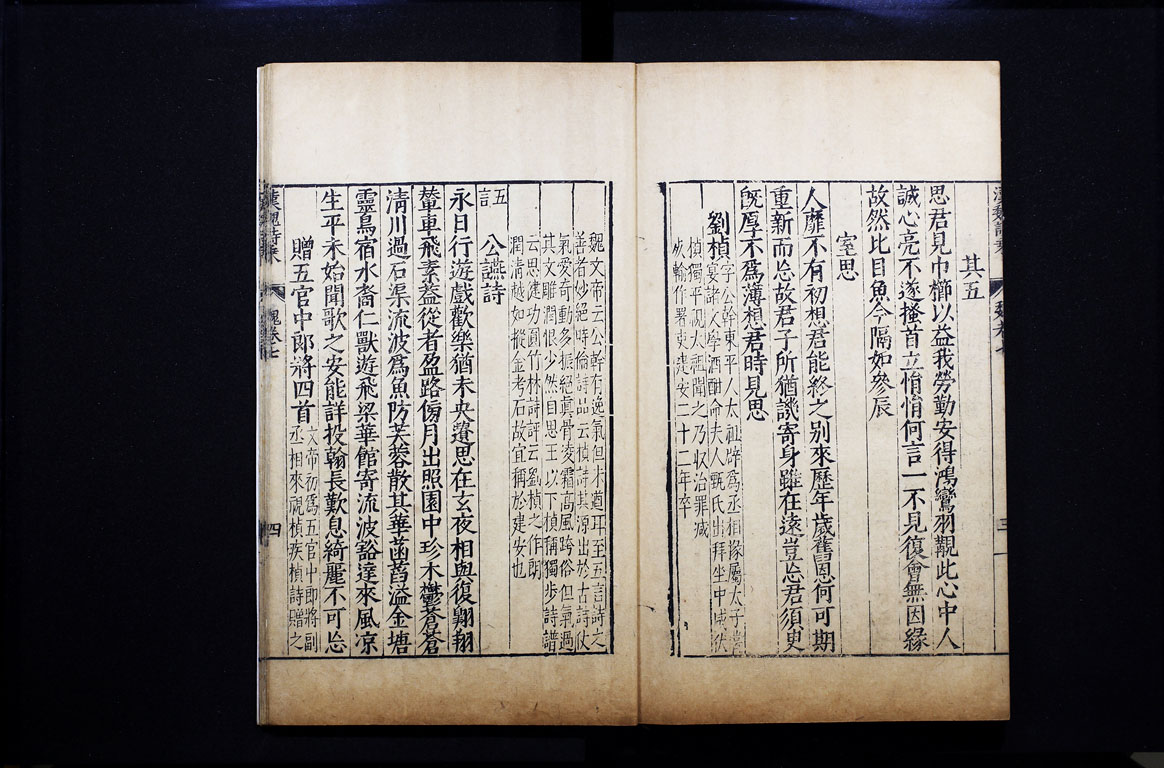 漢魏詩乘
魏卷七
三
其五
思君見巾櫛以益我勞勤安得鴻鸞羽觀此心中人
誠心亮不遂搔首立悁悁何言一不見復會無因緣
故然比目魚今隔如參辰
室思
人靡不有初想君能終之别來歷年歲舊恩何可期
重新而忘故君子所猶譏寄身雖在遠豈忘君須臾
旣厚不爲薄想君時見思
劉楨
字公幹東平人太祖辟爲丞相掾屬太子嘗
宴諸文學酒酣命夫人甄氏出拜坐中咸伏
楨獨平視太祖聞之乃収治罪减
死輸作署吏建安二十二年卒
魏文帝云公幹有逸氣但未遒耳至五言詩之
善者妙絕時倫詩品云楨詩其源出於古詩仗
氣愛奇動多振絕眞骨凌霜高風跨俗但氣過
其文雕潤恨少然自思王以下楨稱獨步詩譜
云思健功圓竹林詩評云劉楨之作朗
潤清越如摐金考石故宜稱於建安也
五言
公讌詩
永日行遊戲歡樂猶未央遺思在玄夜相與復翱翔
輦車飛素葢從者盈路傍月出照園中珍木鬱蒼蒼
清川過石渠流波爲魚防芙蓉散其華菡萏溢金塘
靈鳥宿水裔仁獸遊飛梁華館寄流波豁達來風凉
生平未始聞歌之安能詳投翰長歎息綺麗不可忘
贈五官中郎將四首
文帝初爲五官中郎將副
丞相來視楨疾楨詩贈之
漢魏詩乘
魏卷七
四